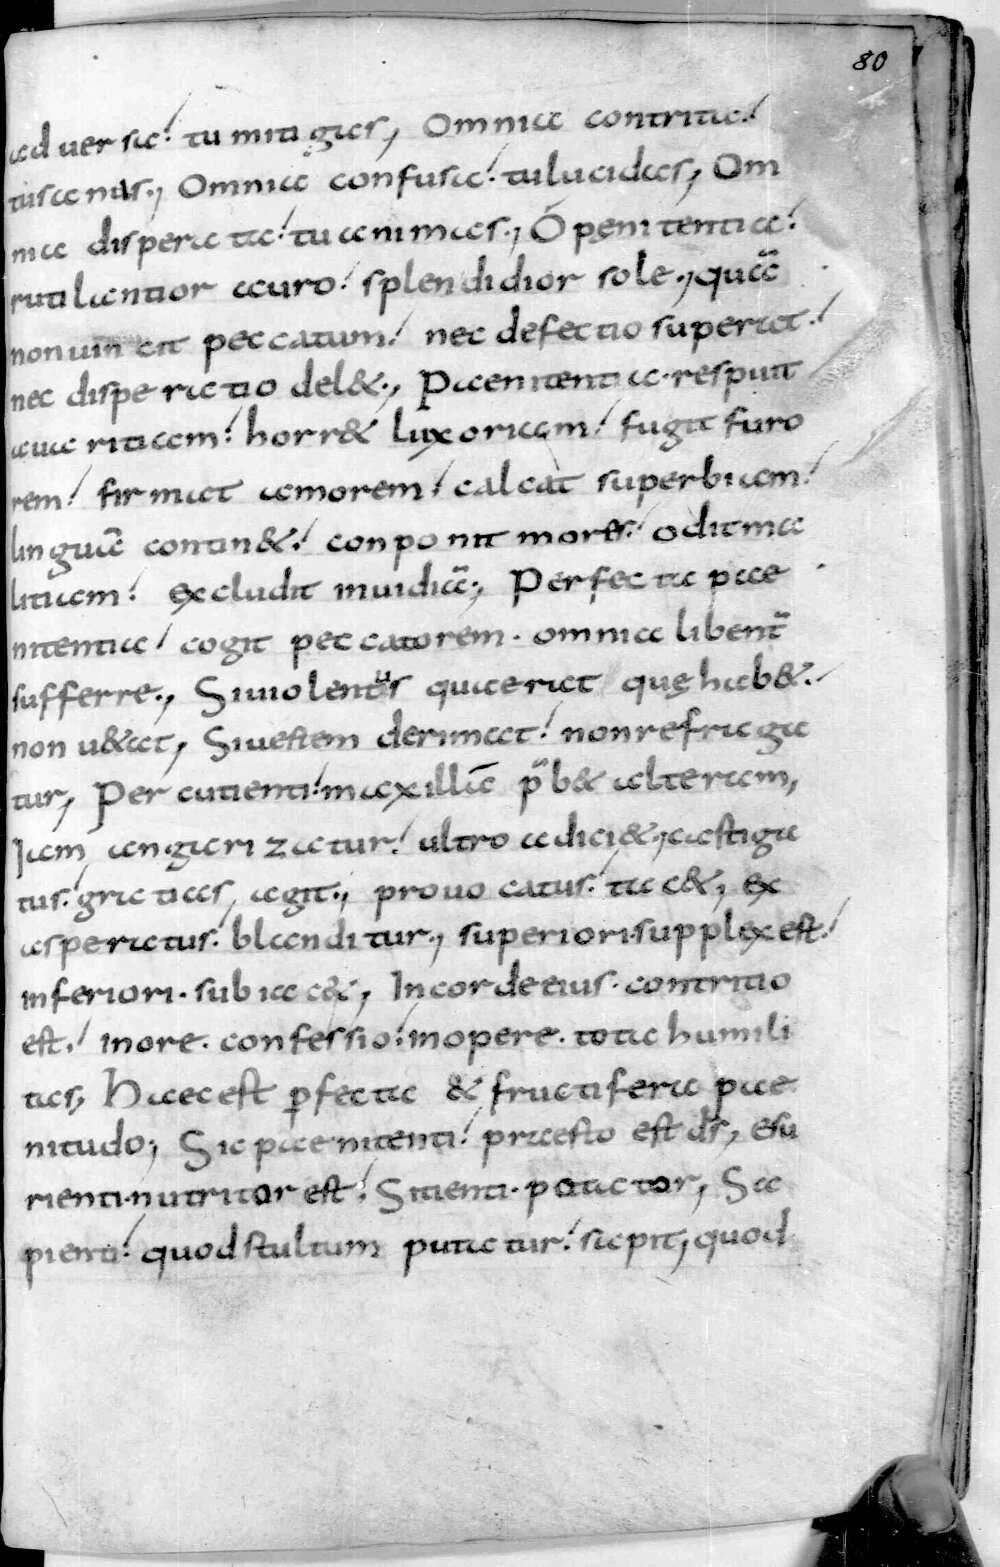 80
aduersa! tu mitigas, Omnia contrita!
tu sanas., Omnia confusa! tu lucidas, Om
nia disperata! tu animas., O pęnitentia!
rutilantior auro! splendidior sole., quā
non uincit peccatum! nec defectio superat!
nec disperatio del&., Paenitentia respuit
auaritiam! horr& luxoriam! fugat furo
rem! firmat amorem! calcat superbiam!
linguā contin&! conponit mores! odit ma
litiam! excludit inuidiā; Perfecta pae
nitentia! cogit peccatorem. omnia libent̄
sufferre., Si uiolentus quaerat quę hab&.
non u&at, Si uestem derimat! non refraga
tur, Percutienti! maxillā p̄b& alteram,
Iam angarizatur! ultro adici&., castiga
tus! gratias agit., prouocatus! tac&, ex
asperatus! blanditur., superiori. supplex est!
inferiori. subiac&, In corde eius. contritio
est! in ore. confessio! in opere. tota humili
tas, Haec est ꝑfecta & fructifera pae
nitudo; Sic paenitenti! praesto est d̄s, esu
rienti. nutritor est! Sitienti. potator, Sa
pienti! quod stultum putatur! sapit, quod